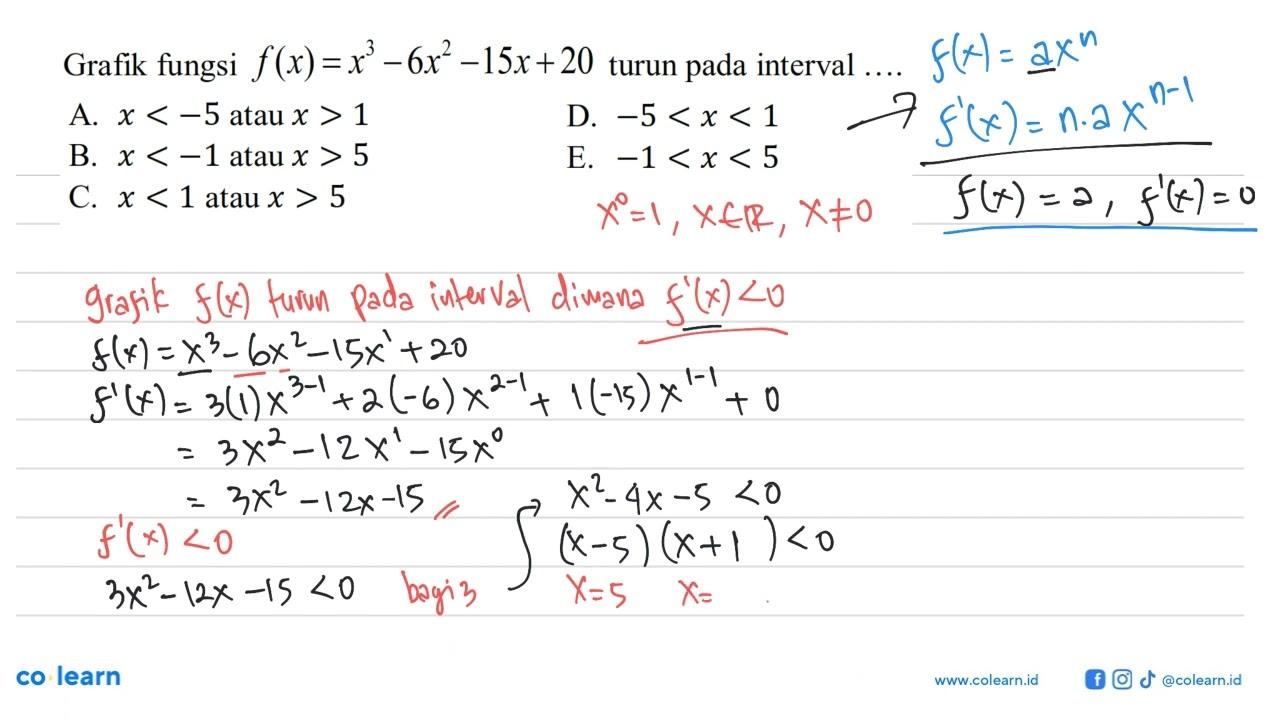 Grafik fungsi f(x) = x³ − 6x² − 15x + 20 turun pada interval ....
A. x < −5 atau x > 1
B. x < −1 atau x > 5
C. x < 1 atau x > 5
D. −5 < x < 1
E. −1 < x < 5
f(x) = ax^n
→ f'(x) = n·a x^(n−1)
f(x) = a, f'(x) = 0
x⁰ = 1, x ∈ ℝ, x ≠ 0
grafik f(x) turun pada interval dimana f'(x) < 0
f(x) = x³ − 6x² − 15x¹ + 20
f'(x) = 3(1)x^(3−1) + 2(−6)x^(2−1) + 1(−15)x^(1−1) + 0
= 3x² − 12x¹ − 15x⁰
= 3x² − 12x − 15
f'(x) < 0
3x² − 12x − 15 < 0 bagi 3
x² − 4x − 5 < 0
(x − 5)(x + 1) < 0
x = 5 x =
co learn
www.colearn.id
@colearn.id